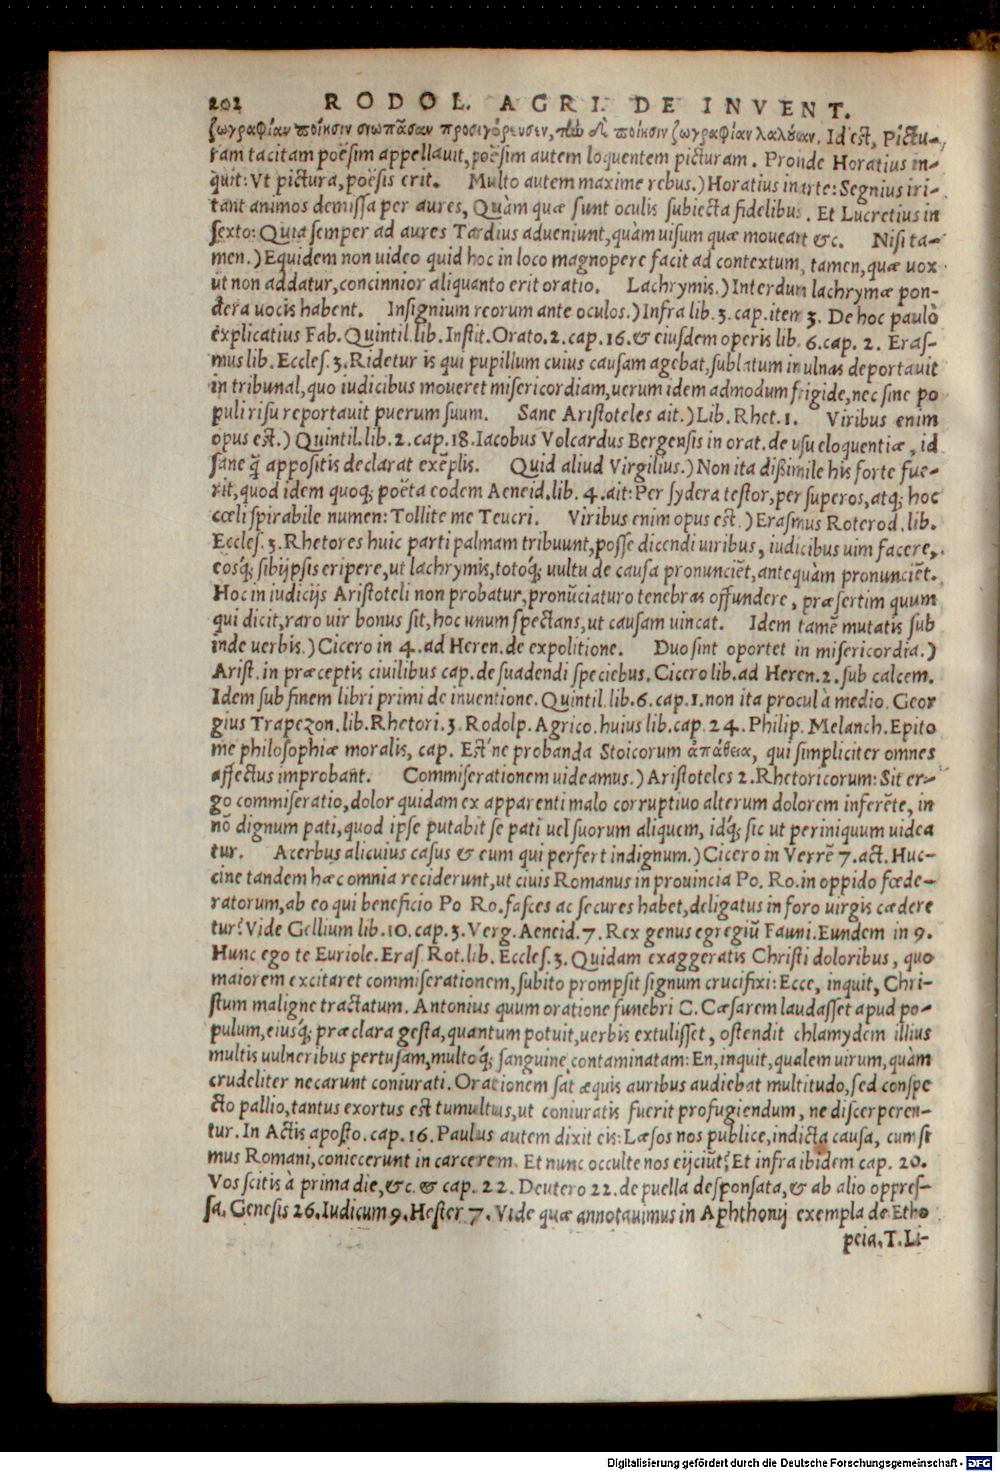 202 RODOL. AGRI. DE INVENT.
ζωγραφίαν ποίησιν σιωπᾶσαν προσηγόρευσεν, τὴν δὲ ποίησιν ζωγραφίαν λαλοῦσαν. Id est, Pictu-
ram tacitam poësim appellauit, poësim autem loquentem picturam. Proinde Horatius in-
quit: Vt pictura, poësis erit. Multo autem maxime rebus.) Horatius in arte: Segnius iri-
tant animos demissa per aures, Quàm quæ sunt oculis subiecta fidelibus. Et Lucretius in
sexto: Quia semper ad aures Tardius adueniunt, quàm uisum quæ moueant &c. Nisi ta-
men.) Equidem non uideo quid hoc in loco magnopere facit ad contextum, tamen, quæ uox
ut non addatur, concinnior aliquanto erit oratio. Lachrymis.) Interdum lachrymæ pon-
dera uocis habent. Insignium reorum ante oculos.) Infra lib. 3. cap. item 3. De hoc paulò
explicatius Fab. Quintil. lib. Instit. Orato. 2. cap. 16. & eiusdem operis lib. 6. cap. 2. Eras-
mus lib. Eccles. 3. Ridetur is qui pupillum cuius causam agebat, sublatum in ulnas deportauit
in tribunal, quo iudicibus moueret misericordiam, uerum idem admodum frigide, nec sine po
puli risu reportauit puerum suum. Sane Aristoteles ait.) Lib. Rhet. 1. Viribus enim
opus est.) Quintil. lib. 2. cap. 18. Iacobus Volcardus Bergensis in orat. de usu eloquentiæ, id
sane q̃ appositis declarat exẽplis. Quid aliud Virgilius.) Non ita dißimile his forte fue-
rit, quod idem quoq; poëta eodem Aeneid. lib. 4. ait: Per sydera testor, per superos, atq; hoc
cœli spirabile numen: Tollite me Teucri. Viribus enim opus est.) Erasmus Roterod. lib.
Eccles. 3. Rhetores huic parti palmam tribuunt, posse dicendi uiribus, iudicibus uim facere,
eosq; sibijpsis eripere, ut lachrymis, totoq; uultu de causa pronunciẽt, antequàm pronunciẽt.
Hoc in iudicijs Aristoteli non probatur, pronũciaturo tenebras offundere, præsertim quum
qui dicit, raro uir bonus sit, hoc unum spectans, ut causam uincat. Idem tamẽ mutatis sub
inde uerbis.) Cicero in 4. ad Heren. de expolitione. Duo sint oportet in misericordia.)
Arist. in præceptis ciuilibus cap. de suadendi speciebus. Cicero lib. ad Heren. 2. sub calcem.
Idem sub finem libri primi de inuentione. Quintil. lib. 6. cap. 1. non ita procul à medio. Geor
gius Trapezon. lib. Rhetori. 3. Rodolp. Agrico. huius lib. cap. 24. Philip. Melanch. Epito
me philosophiæ moralis, cap. Est ne probanda Stoicorum ἀπάθεια, qui simpliciter omnes
affectus improbant. Commiserationem uideamus.) Aristoteles 2. Rhetoricorum: Sit er-
go commiseratio, dolor quidam ex apparenti malo corruptiuo alterum dolorem inferẽte, in
nõ dignum pati, quod ipse putabit se pati uel suorum aliquem, idq́; sic ut periniquum uidea
tur. Acerbus alicuius casus & eum qui perfert indignum.) Cicero in Verrẽ 7. act. Huc-
cine tandem hæc omnia reciderunt, ut ciuis Romanus in prouincia Po. Ro. in oppido fœde-
ratorum, ab eo qui beneficio Po Ro. fasces ac secures habet, deligatus in foro uirgis cædere
tur? Vide Gellium lib. 10. cap. 3. Verg. Aeneid. 7. Rex genus egregiũ Fauni. Eundem in 9.
Hunc ego te Euriole. Eras. Rot. lib. Eccles. 3. Quidam exaggeratis Christi doloribus, quo
maiorem excitaret commiserationem, subito prompsit signum crucifixi: Ecce, inquit, Chri-
stum maligne tractatum. Antonius quum oratione funebri C. Cæsarem laudasset apud po-
pulum, eiusq́; præclara gesta, quantum potuit, uerbis extulisset, ostendit chlamydem illius
multis uulneribus pertusam, multoq́; sanguine contaminatam: En, inquit, qualem uirum, quàm
crudeliter necarunt coniurati. Orationem sat æquis auribus audiebat multitudo, sed conspe
cto pallio, tantus exortus est tumultus, ut coniuratis fuerit profugiendum, ne discerperen-
tur. In Actis aposto. cap. 16. Paulus autem dixit eis: Læsos nos publice, indicta causa, cum si
mus Romani, coniecerunt in carcerem. Et nunc occulte nos eijciũt? Et infra ibidem cap. 20.
Vos scitis à prima die, &c. & cap. 22. Deutero 22. de puella desponsata, & ab alio oppres-
sa. Genesis 26. Iudicum 9. Hester 7. Vide quæ annotauimus in Aphthonij exempla de Etho
pœia. T. Li-
Digitalisierung gefördert durch die Deutsche Forschungsgemeinschaft - DFG